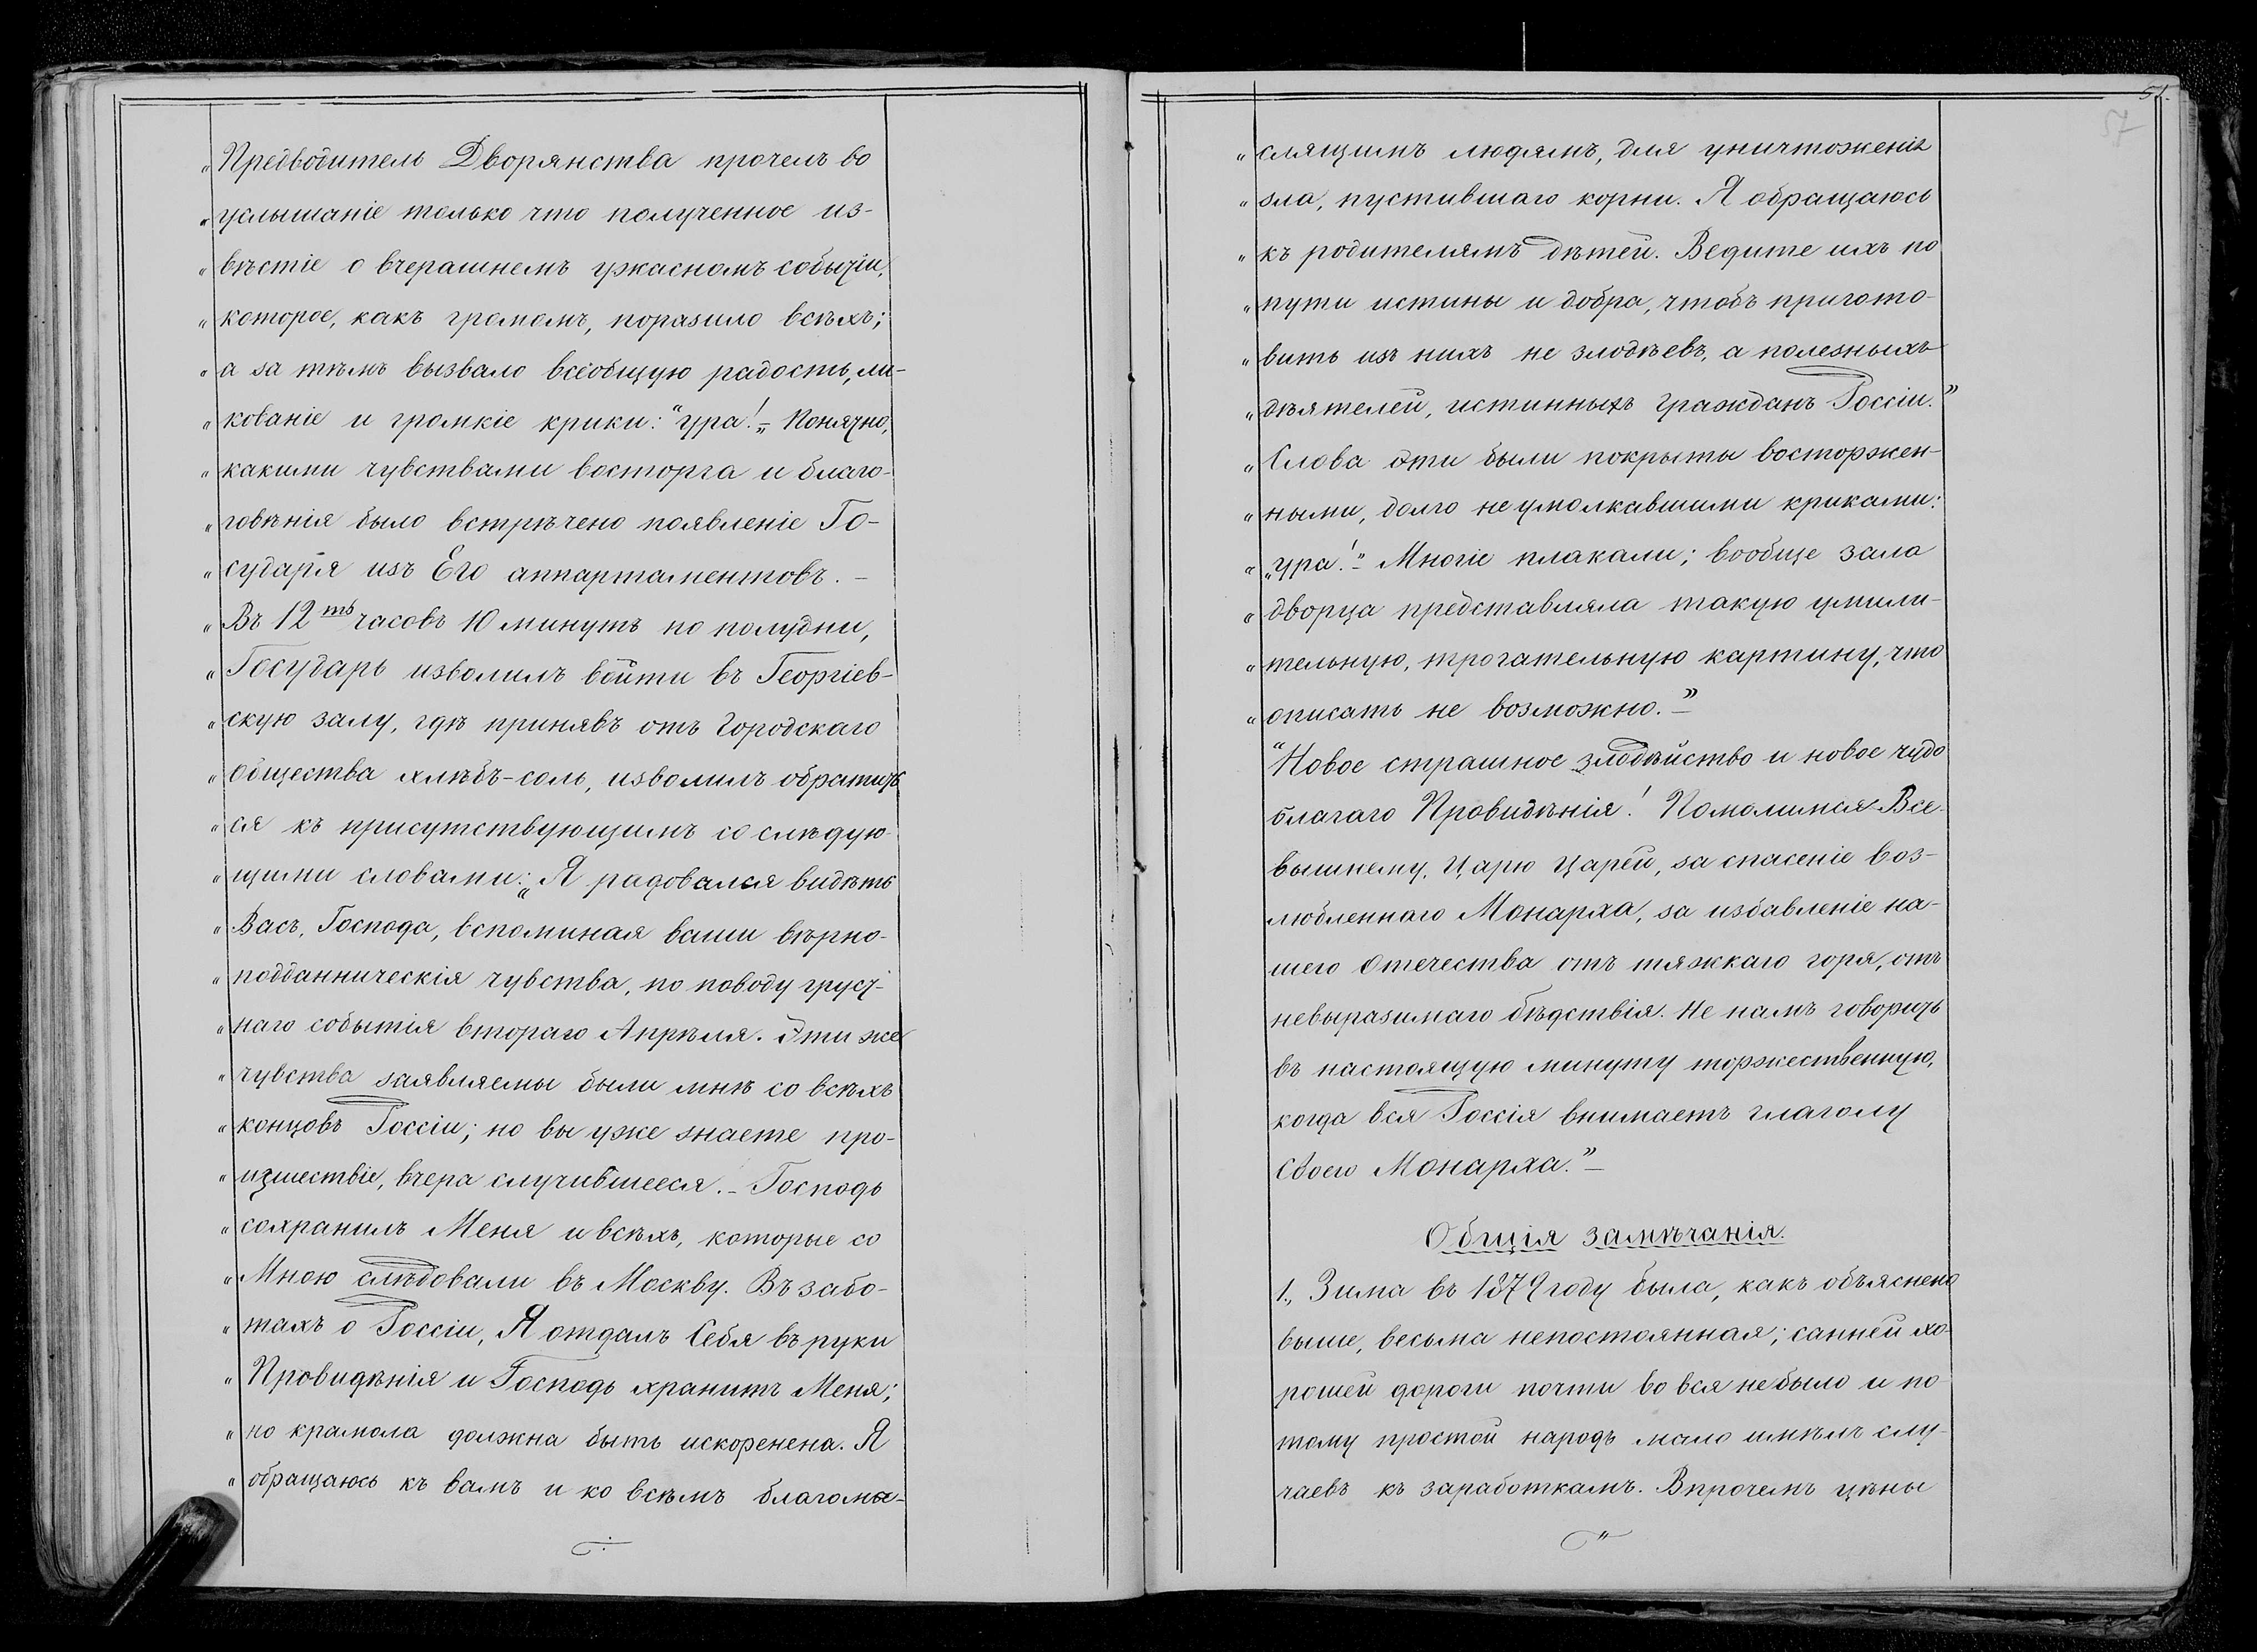 „Предводитель Дворянства прочелъ во
„услышаніе только что полученное из-
„вѣстіе о вчерашнемъ ужасномъ событіи,
„которое, какъ громомъ, поразило всѣхъ;
„а за тѣмъ вызвало всеобщую радость, ли-
„кованіе и громкіе крики: "ура!„ – Понятно,
„какими чувствами восторга и благо-
„говѣнія было встрѣчено появленіе Го-
„сударя изъ Его аппартаментовъ. –
„Въ 12ть часовъ 10 минутъ по полудни,
„Государь изволилъ войти въ Георгіев-
„скую залу, гдѣ принявъ отъ Городскаго
„общества хлѣбъ-соль, изволилъ обратить
„ся къ присутствующимъ со слѣдую-
„щими словами: „Я радовался видѣть
„Васъ, Господа, вспоминая ваши вѣрно-
„подданническія чувства, по поводу груст-
„наго событія втораго Апрѣля. Эти же
„чувства заявляемы были мнѣ со всѣхъ
„концовъ Россіи; но вы уже знаете про-
„изшествіе, вчера случившееся. – Господь
„сохранилъ Меня и всѣхъ, которые со
„Мною слѣдовали въ Москву. Въ забо-
„тахъ о Россіи, Я отдалъ Себя въ руки
„Провидѣнія и Господь хранитъ Меня;
„но крамола должна быть искоренена. Я
„обращаюсь къ вамъ и ко всѣмъ благомы-
51.
57
„слящимъ людямъ, для уничтоженія
„зла, пустившаго корни. Я обращаюсь
„къ родителямъ дѣтей. Ведите ихъ по
„пути истины и добра, чтобъ пригото-
„вить изъ нихъ не злодѣевъ, а полезныхъ
„дѣятелей, истинныхъ гражданъ Россіи.”
„Слова эти были покрыты восторжен-
„ными, долго не умолкавшими криками:
„„ура!” – Многіе плакали; вообще зала
„дворца представляла такую умили-
„тельную, трогательную картину, что
„описать не возможно.” –
"Новое страшное злодѣйство и новое чудо
благаго Провидѣнія! Помолимся Все-
вышнему, Царю Царей, за спасеніе воз-
любленнаго Монарха, за избавленіе на-
шего Отечества отъ тяжкаго горя, отъ
невыразимаго бѣдствія. Не намъ говорить
въ настоящую минуту торжественную,
когда вся Россія внимаетъ глаголу
своего Монарха.” –
Общія замѣчанія.
1., Зима въ 1879 году была, какъ объяснено
выше, весьма непостоянная; санней хо-
рошей дороги почти во вся не было и по-
тому простой народъ мало имѣлъ слу-
чаевъ къ заработкамъ. Впрочемъ цѣны